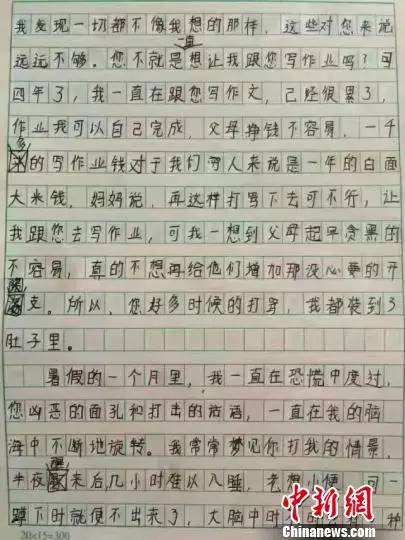 我发现一切都不像我想的那样，这些对您来说
远远不够。您不就是一直想让我跟您写作业吗？可
四年了，我一直在跟您写作文，已经很累了，
作业我可以自己完成，父母挣钱不容易，一千
多的写作业钱对于我们穷人来说是一年的白面
大米钱，妈妈说，再这样打骂下去可不行，让
我跟您去写作业，可我一想到父母起早贪黑的
不容易，真的不想再给他们增加那没必要的开
支。所以，您好多时候的打骂，我都装到了
肚子里。
暑假的一个月里，我一直在恐慌中度过，
您凶恶的面孔和打击的话语，一直在我的脑
海中不断地旋转。我常常梦见你打我的情景，
半夜醒来后几小时难以入睡，老想小便，可一
蹲下时就便不出来了，大脑中时
20×15=300
中新网